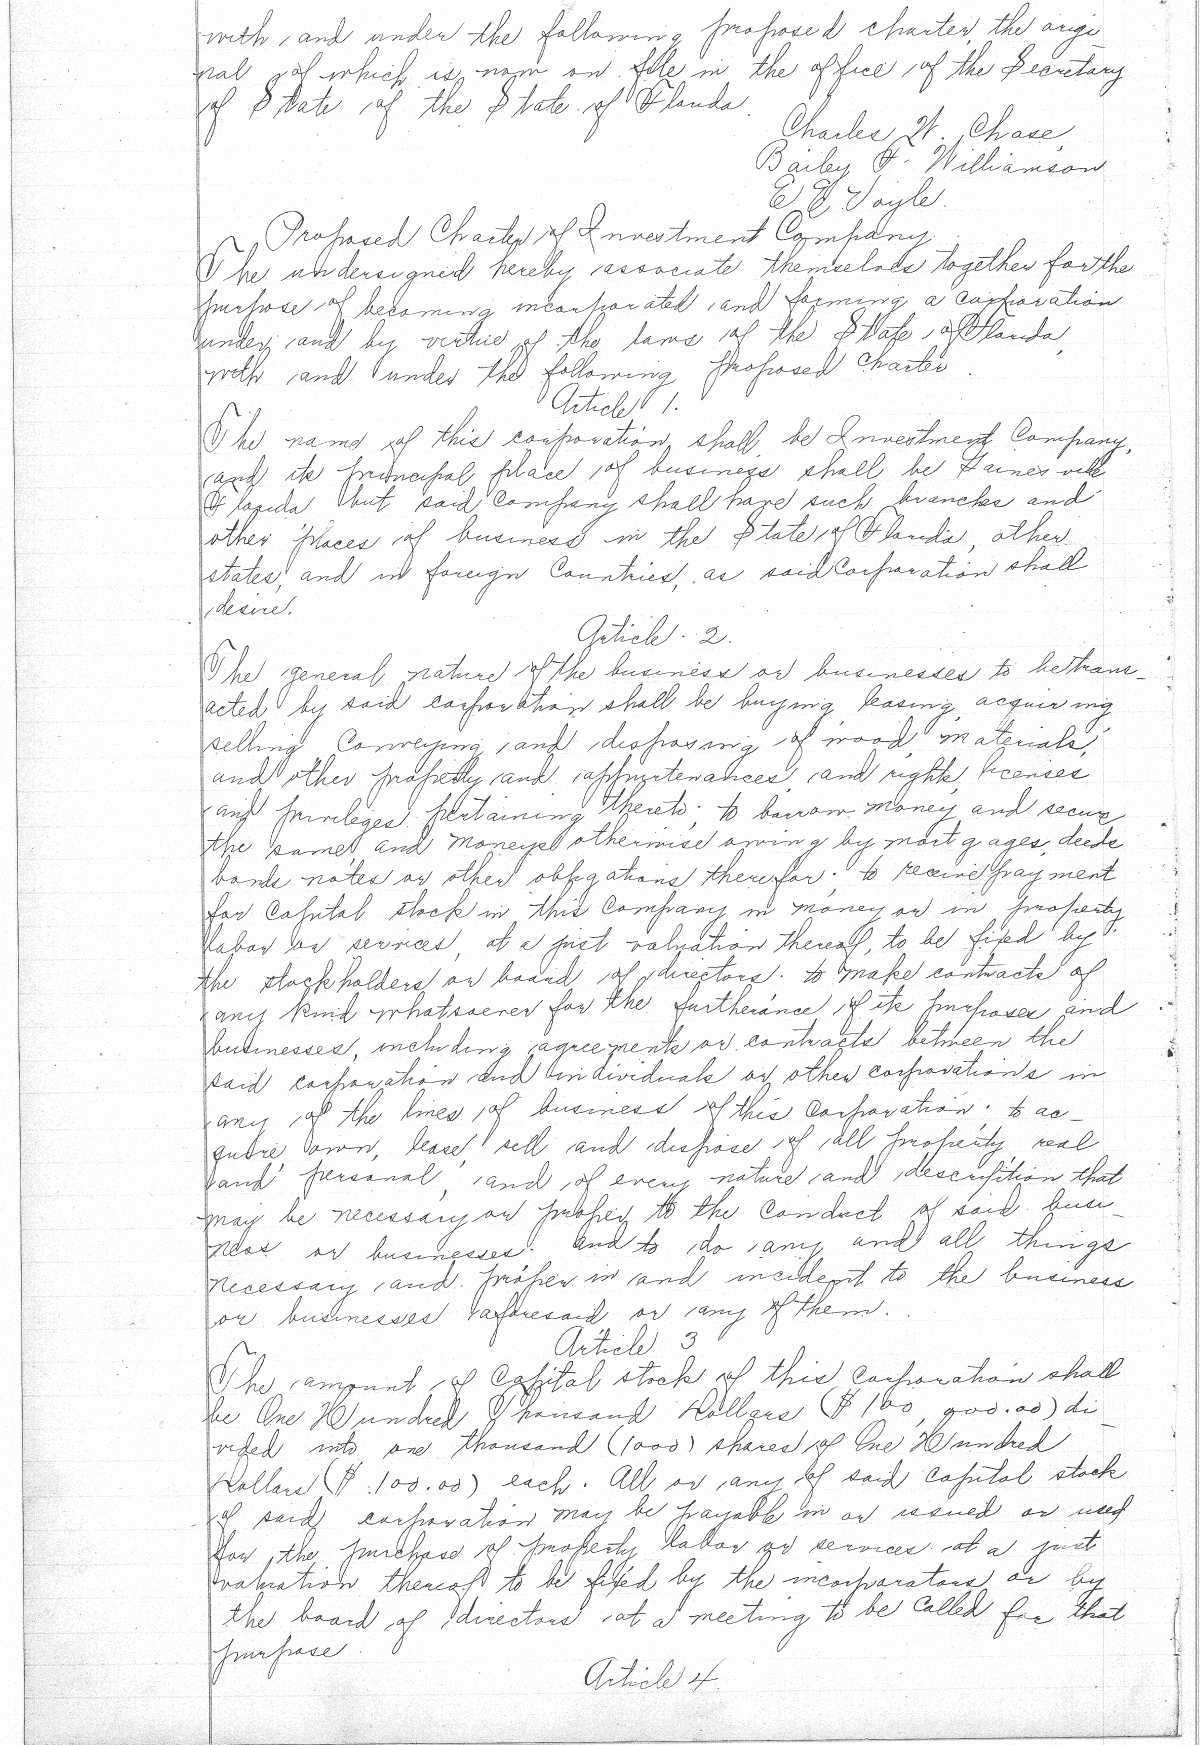 with and under the following proposed charter, the origi
nal of which is now on file in the office of the Secretary
of State of the State of Florida.
Charles W. Chase,
Bailey F. Williamson
E E Voyle.
Proposed Charter of Investment Company.
The undersigned hereby associate themselves together for the
purpose of becoming incorporated and forming a corporation
under and by virtue of the laws of the State of Florida,
with and under the following proposed Charter.
Article 1.
The name of this corporation shall be Investment Company,
and its principal place of business shall be Gainesville
Florida but said Company shall have such branches and
other places of business in the State of Florida, other
states, and in foreign Countries, as said Corporation shall
desire.
Article 2.
The general nature of the business or businesses to be trans-
acted by said corporation shall be buying, leasing, acquiring
selling Conveying and disposing of wood, materials,
and other property and appurtenances, and rights, licenses
and privileges pertaining thereto; to borrow money and secure
the same, and moneys otherwise owing by mortgages, deeds
bonds notes or other obligations therefor; to receive payment
for Capital stock in this Company in money or in property
labor or services, at a just valuation thereof, to be fixed by
the stockholders or board of directors; to make contracts of
any kind whatsoever for the furtherance of its purposes and
businesses, including agreements or contracts between the
said corporation and individuals or other corporations in
any of the lines of business of this Corporation; to ac-
quire own, lease, sell and dispose of all property real
and personal, and of every nature and description that
may be necessary or proper to the Conduct of said busi-
ness or businesses; and to do any and all things
necessary and proper in and incident to the business
or businesses aforesaid or any of them.
Article 3
The amount of Capital stock of this Corporation shall
be One Hundred Thousand Dollars ($100,000.00) di-
vided into one thousand (1000) shares of One Hundred
Dollars ($100.00) each. All or any of said Capital stock
of said corporation may be payable in or issued or used
for the purchase of property labor or services at a just
valuation thereof to be fixed by the incorporators or by
the board of directors at a meeting to be Called for that
purpose.
Article 4.